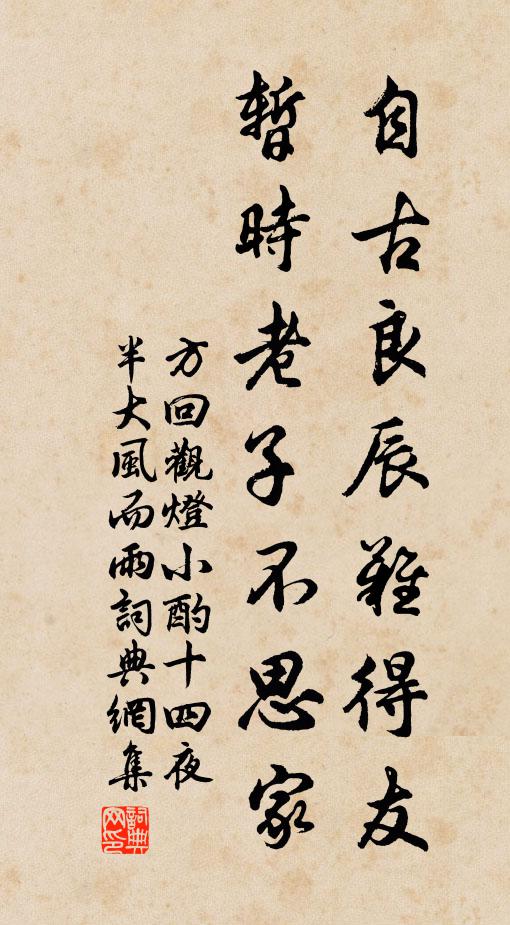 自古良辰難得友
暫時老子不思家
方回觀燈小酌十四夜
半大風而雨詞典網集
詞典
网印